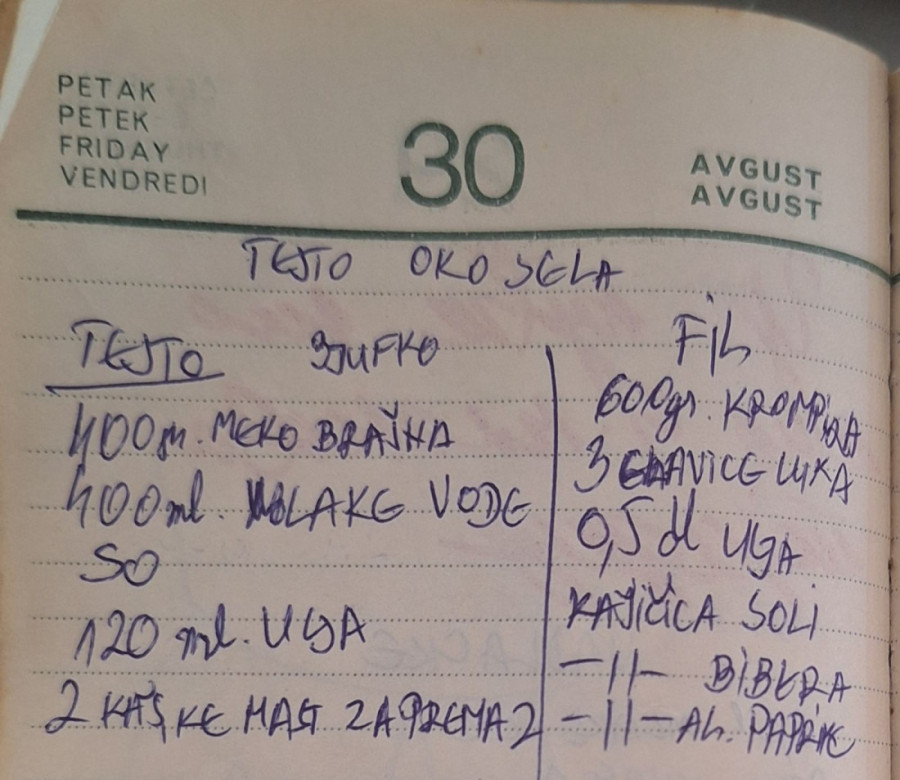 PETAK
PETEK
FRIDAY
VENDREDI
30
AVGUST
AVGUST
TESTO OKO SELA
TESTO
400gr. MEKO BRAŠNA
400ml. MLAKE VODE
SO
120 ml. UljA
2 KAŠIKE MAST ZA PREMAZ
FiL
600gr. KROMPiRA
3 GLAVICE LUKA
0,5 dl UljA
KAŠIČICA SOLI
—||— BiBERA
—||— AL. PAPRIKE